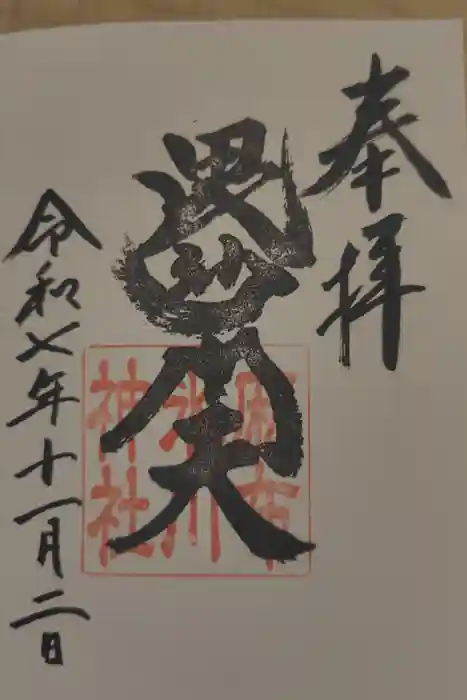 奉拝
毘沙門天
麻布
氷川
神社
令和七年十一月二日